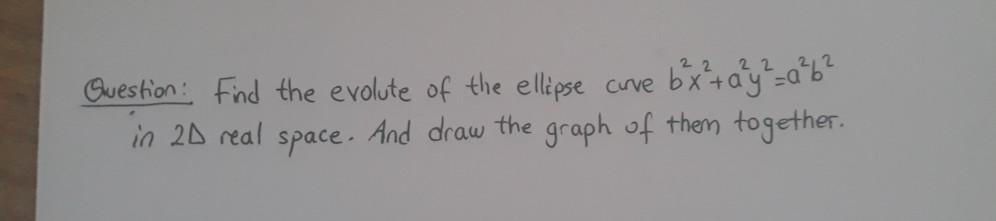 Question: Find the evolute of the ellipse curve b²x²+a²y²=a²b²
in 2D real space. And draw the graph of them together.